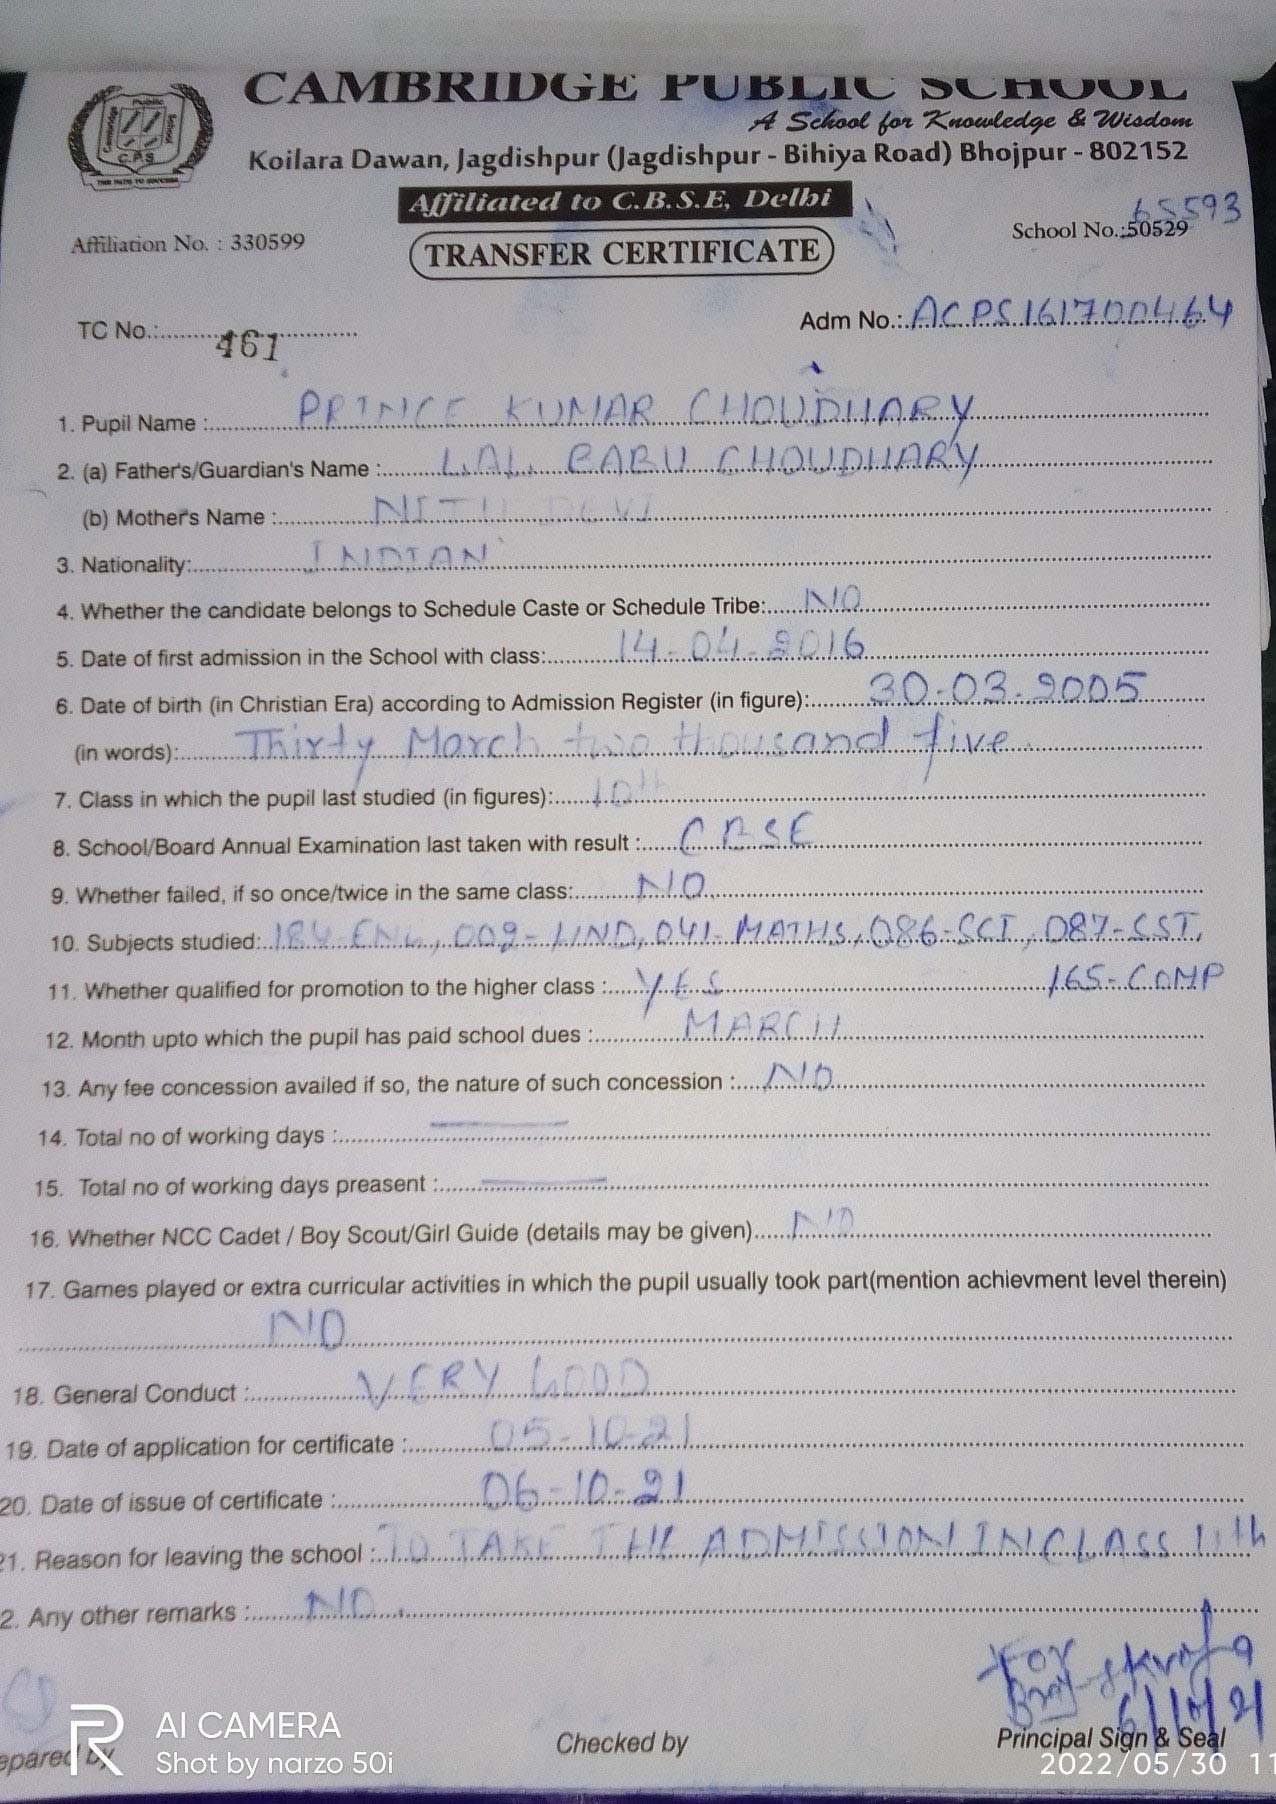 CAMBRIDGE PUBLIC SCHOOL
A School for Knowledge & Wisdom
Koilara Dawan, Jagdishpur (Jagdishpur - Bihiya Road) Bhojpur - 802152
Affiliated to C.B.S.E, Delhi
65593
Affiliation No. : 330599
School No.:50529
TRANSFER CERTIFICATE
TC No.: 461
Adm No.: ACPS161700464
1. Pupil Name : PRINCE KUMAR CHOUDHARY
2. (a) Father's/Guardian's Name : LAL BABU CHOUDHARY
(b) Mother's Name : NITU DEVI
3. Nationality: INDIAN
4. Whether the candidate belongs to Schedule Caste or Schedule Tribe: NO
5. Date of first admission in the School with class: 14-04-2016
6. Date of birth (in Christian Era) according to Admission Register (in figure): 30-03-2005
(in words): Thirty March two thousand five
7. Class in which the pupil last studied (in figures): 10th
8. School/Board Annual Examination last taken with result : CBSE
9. Whether failed, if so once/twice in the same class: NO
10. Subjects studied: 184-ENG, 002-HIND, 041-MATHS, 086-SCI, 087-SST,
165-COMP
11. Whether qualified for promotion to the higher class : YES
12. Month upto which the pupil has paid school dues : MARCH
13. Any fee concession availed if so, the nature of such concession : NO
14. Total no of working days :
15. Total no of working days preasent :
16. Whether NCC Cadet / Boy Scout/Girl Guide (details may be given) NO
17. Games played or extra curricular activities in which the pupil usually took part(mention achievment level therein)
NO
18. General Conduct : VERY GOOD
19. Date of application for certificate : 05-10-21
20. Date of issue of certificate : 06-10-21
21. Reason for leaving the school : TO TAKE THE ADMISSION IN CLASS 11th
2. Any other remarks : NO
For
6/10/21
epared by
Checked by
Principal Sign & Seal
AI CAMERA
Shot by narzo 50i
2022/05/30 11